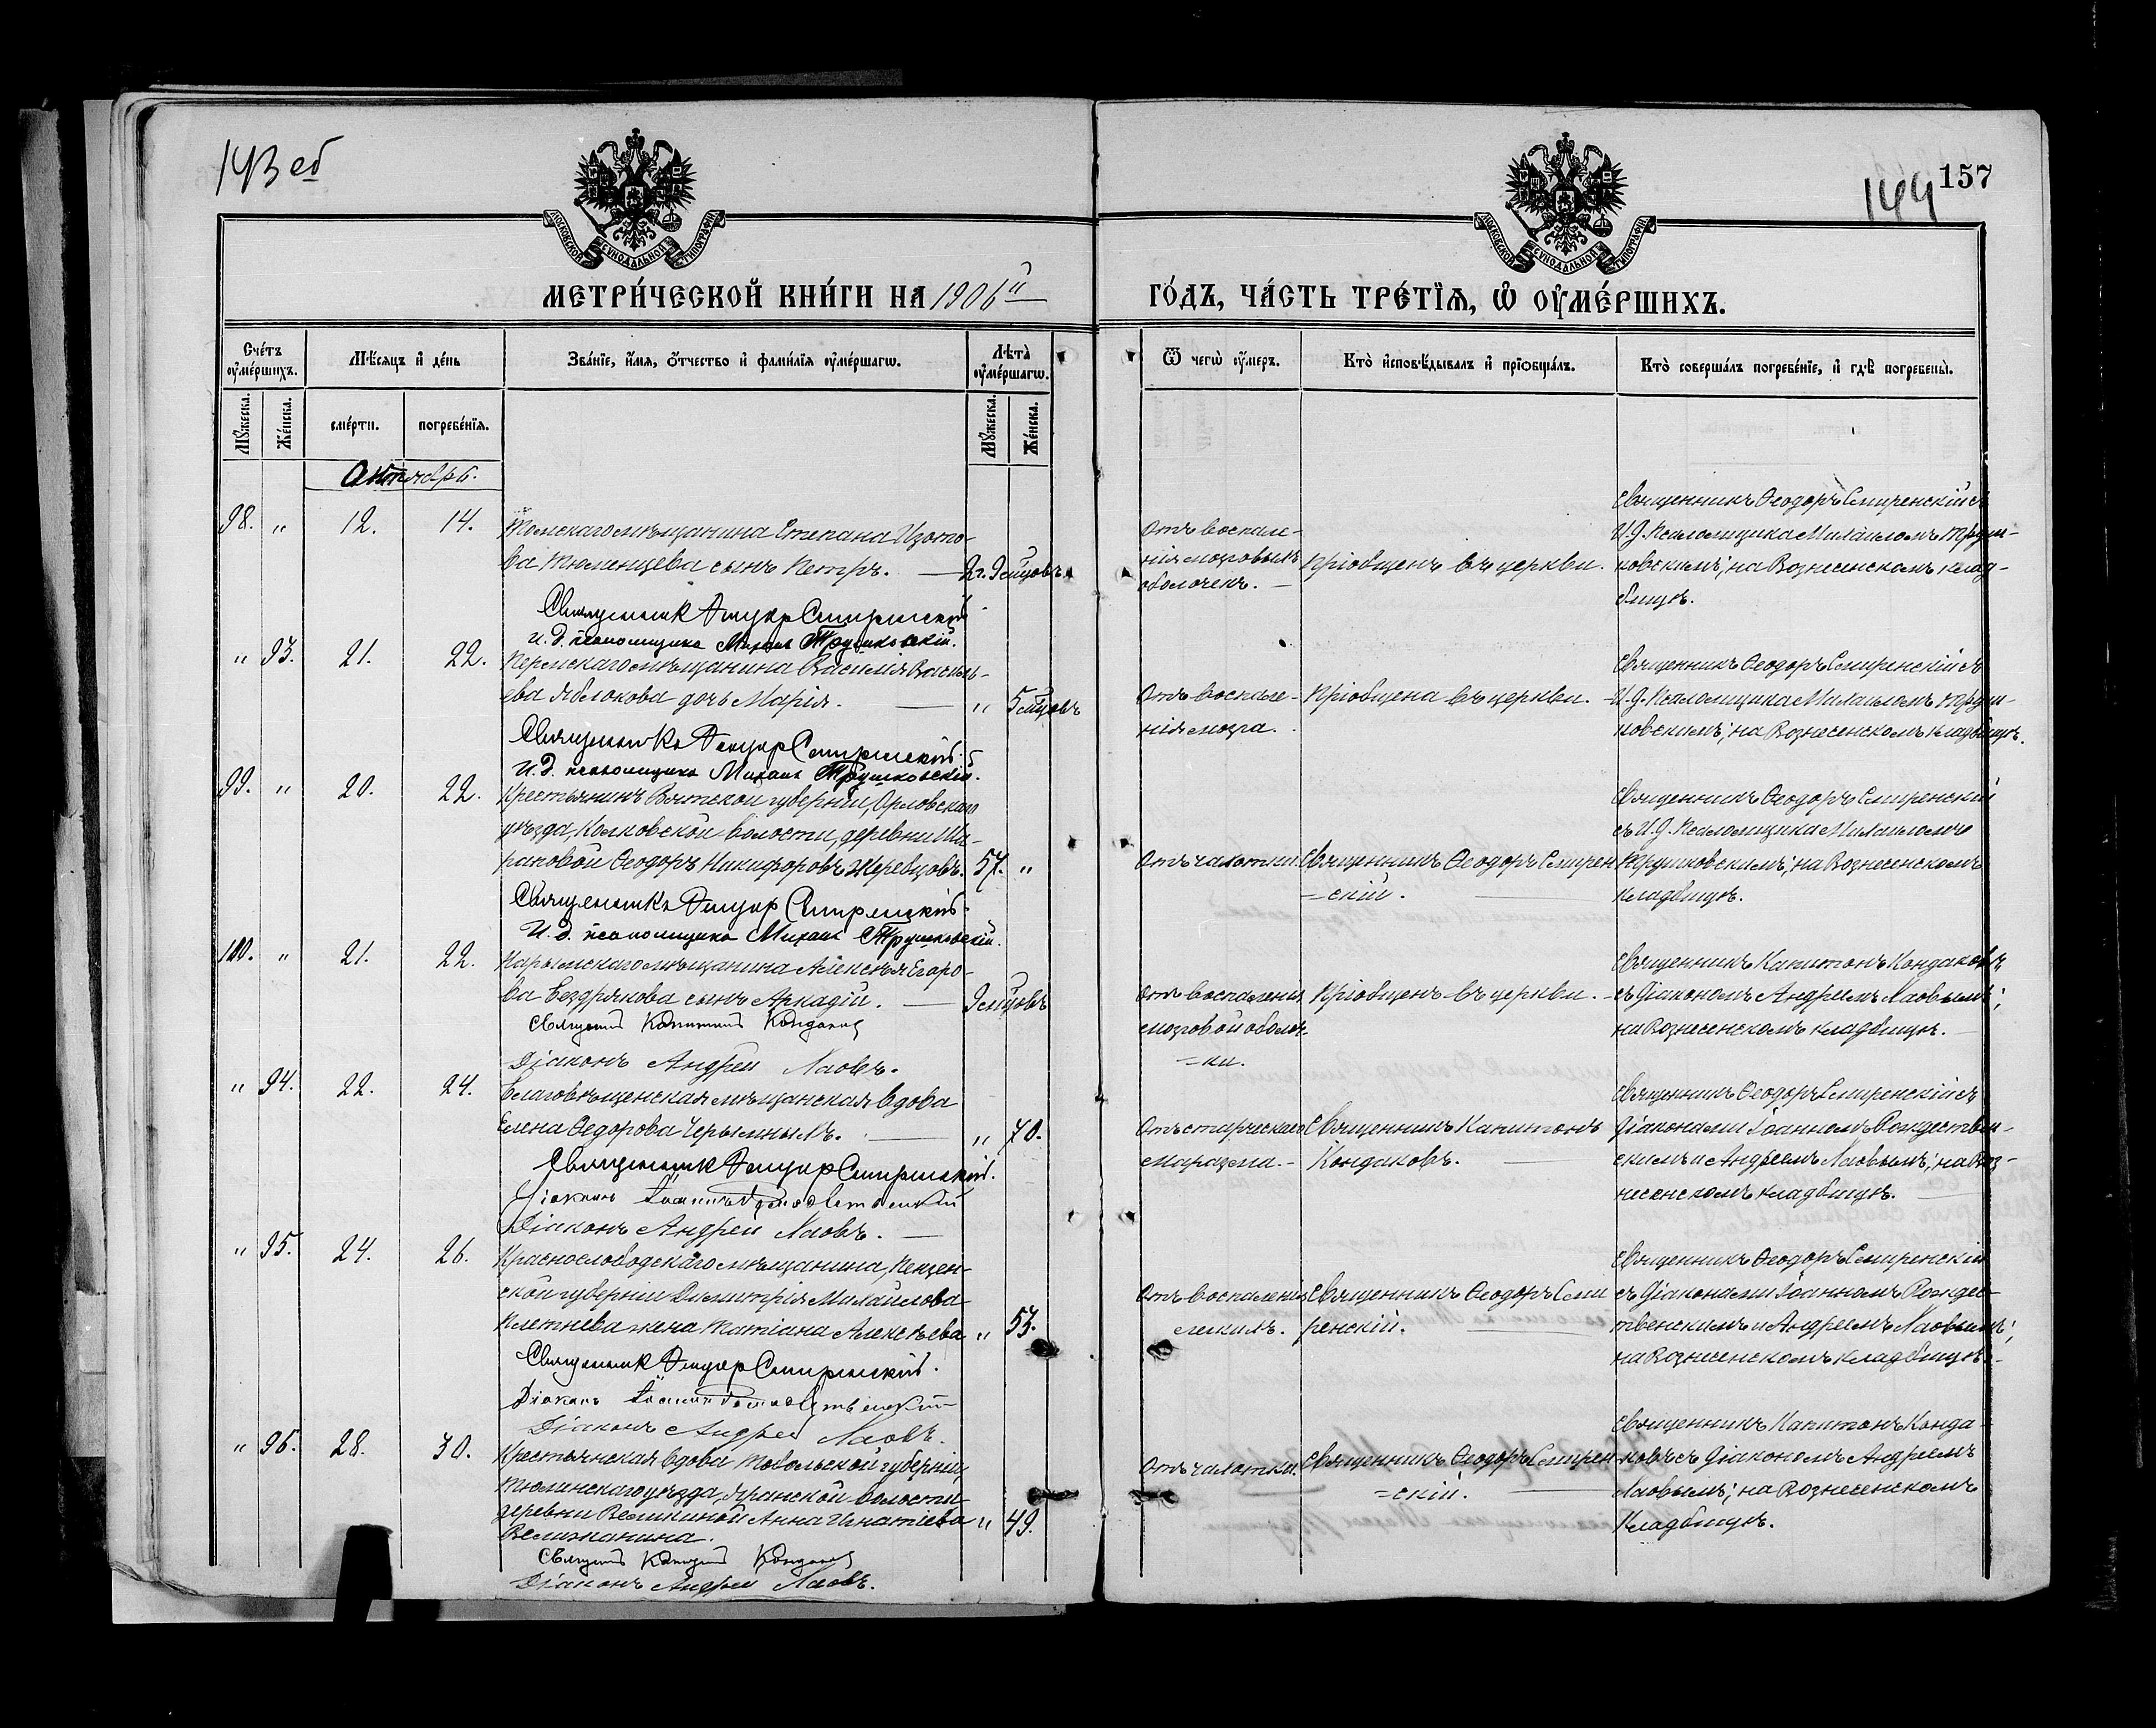 143 об
144
157
МОСКОВСКОЙ СУНОДАЛЬНОЙ ТИПОГРАФІИ
МОСКОВСКОЙ СУНОДАЛЬНОЙ ТИПОГРАФІИ
МЕТРИ́ЧЕСКОЙ КНИ́ГИ НА 1906й
ГО́ДЪ, ЧА́СТЬ ТРЕ́ТІѦ, Ѡ҆ ОУ҆МЕ́РШИХЪ.
Счетъ оумершихъ.
Мѣсяцъ и день
Званіе, имя, отчество и фамилія оумершагѡ.
Лѣта оумершагѡ.
Ѿ чегѡ оумеръ.
Кто исповѣдывалъ и пріобщалъ.
Кто совершалъ погребеніе, и гдѣ погребены.
Мужеска.
Женска.
смерти.
погребенія.
Мужеска.
Женска.
Октябрь.
98. " 12. 14.
Томскаго мѣщанина Степана Изото-
ва Тюменцева сынъ Петръ. — 2г. 9 мѣсцовъ
Священникъ Ѳеодоръ Смиренскій
И. д. псаломщика Михаилъ Трушковскій.
Отъ воспале-
нія мозговыхъ
оболочек. —
Пріобщенъ въ церкви.
Священникъ Ѳеодоръ Смиренскій съ
И.д. Псаломщика Михаиломъ Труш-
ковскимъ; на Вознесенскомъ клад-
бищѣ.
" 93. 21. 22.
Пермскаго мѣщанина Василія Василь-
ева Яблокова дочь Марія. — " 5 мѣсцовъ
Священникъ Ѳеодоръ Смиренскій
И. д. псаломщика Михаилъ Трушковскій.
Отъ воспале-
нія мозга.
Пріобщена въ церкви. —
Священникъ Ѳеодоръ Смиренскій съ
И.д. Псаломщика Михаиломъ Труш-
ковскимъ; на Вознесенскомъ кладбищѣ.
99. " 20. 22.
Крестьянинъ Вятской губерніи, Орловскаго
уѣзда, волости, деревни
Ѳеодоръ Никифоровъ Жеребцовъ. 57. "
Священникъ Ѳеодоръ Смиренскій
И. д. псаломщика Михаилъ Трушковскій.
Отъ чахотки.
Священникъ Ѳеодоръ Смирен
=скій. —
Священникъ Ѳеодоръ Смиренскій
съ И.д. Псаломщика Михаиломъ
Трушковскимъ; на Вознесенскомъ
кладбищѣ.
100. " 21. 22.
Нарымскаго мѣщанина Алексѣя Егоро-
ва сынъ Аркадій. — 9 мѣсцовъ
Священникъ Капитонъ Кондаковъ
Діаконъ Андрей Лаовъ.
Отъ воспаленія
мозговой оболоч-
=ки.
Пріобщенъ въ церкви. —
Священникъ Капитонъ Кондаковъ
съ діакономъ Андреемъ Лаовымъ;
на Вознесенскомъ кладбищѣ. —
" 94. 22. 24.
Благовѣщенская мѣщанская вдова
Елена Ѳедорова Черемныхъ. — " 70.
Священникъ Ѳеодоръ Смиренскій.
Діаконъ Іоаннъ Рождественскій
Діаконъ Андрей Лаовъ. —
Отъ старческаго
маразма. —
Священникъ Капитонъ
Кондаковъ. —
Священникъ Ѳеодоръ Смиренскій съ
діаконами Іоанномъ Рождествен-
скимъ и Андреемъ Лаовымъ; на Воз-
несенскомъ кладбищѣ. —
" 95. 24. 26.
Краснослободскаго мѣщанина, Пензен-
ской губерніи Димитрія Михайлова
Плетнева жена Татіана Алексѣева. " 53.
Священникъ Ѳеодоръ Смиренскій.
Діаконъ Іоаннъ Рождественскій
Діаконъ Андрей Лаовъ.
Отъ воспаленія
легкихъ.
Священникъ Ѳеодоръ Сми
ренскій. —
Священникъ Ѳеодоръ Смиренскій
съ діаконами Іоанномъ Рождес-
твенскимъ и Андреемъ Лаовымъ;
на Вознесенскомъ кладбищѣ. —
" 96. 28. 30.
Крестьянская вдова Тобольской губерніи,
Тюминскаго уѣзда, волости
деревни Анна Игнатіева " 49.
Велижанина.
Священникъ Капитонъ Кондаковъ
Діаконъ Андрей Лаовъ.
Отъ чахотки.
Священникъ Ѳеодоръ Смирен
=скій. —
Священникъ Капитонъ Конда-
ковъ съ діакономъ Андреемъ
Лаовымъ; на Вознесенскомъ
кладбищѣ.